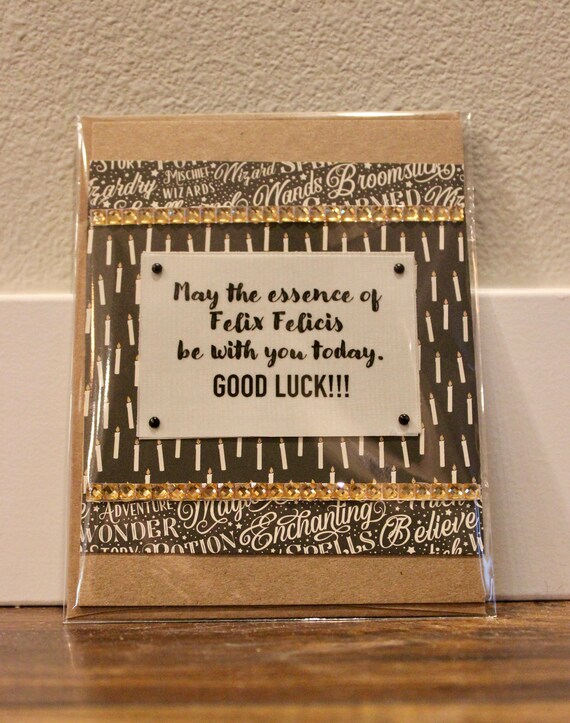 STORY
MISCHIEF Wizard
Wizardry WIZARDS Wands Broomstick
CHARMED
May the essence of
Felix Felicis
be with you today.
GOOD LUCK!!!
ADVENTURE Magic
WONDER Enchanting Believe
STORY POTION SPELLS